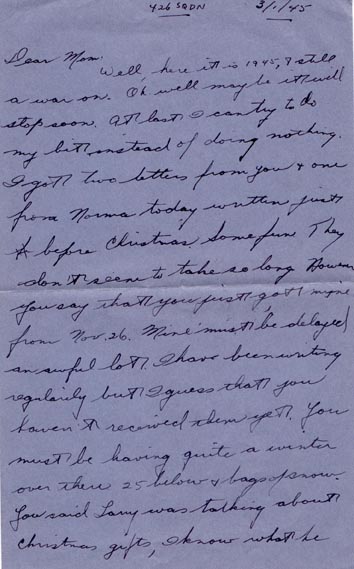 426 SQDN 3/1/45
Dear Mom:
Well, here it is 1945, & still
a war on. Oh well maybe it will
stop soon. At last I can try to do
my bit instead of doing nothing.
I got two letters from you & one
from Norma today written just
before Christmas, some fun. They
don't seem to take so long. However
you say that you just got mine
from Nov. 26. Mine must be delayed
an awful lot. I have been writing
regularily but I guess that you
haven't received them yet. You
must be having quite a winter
over there 25 below & bags of snow.
You said Larry was talking about
Christmas gifts, I know what he